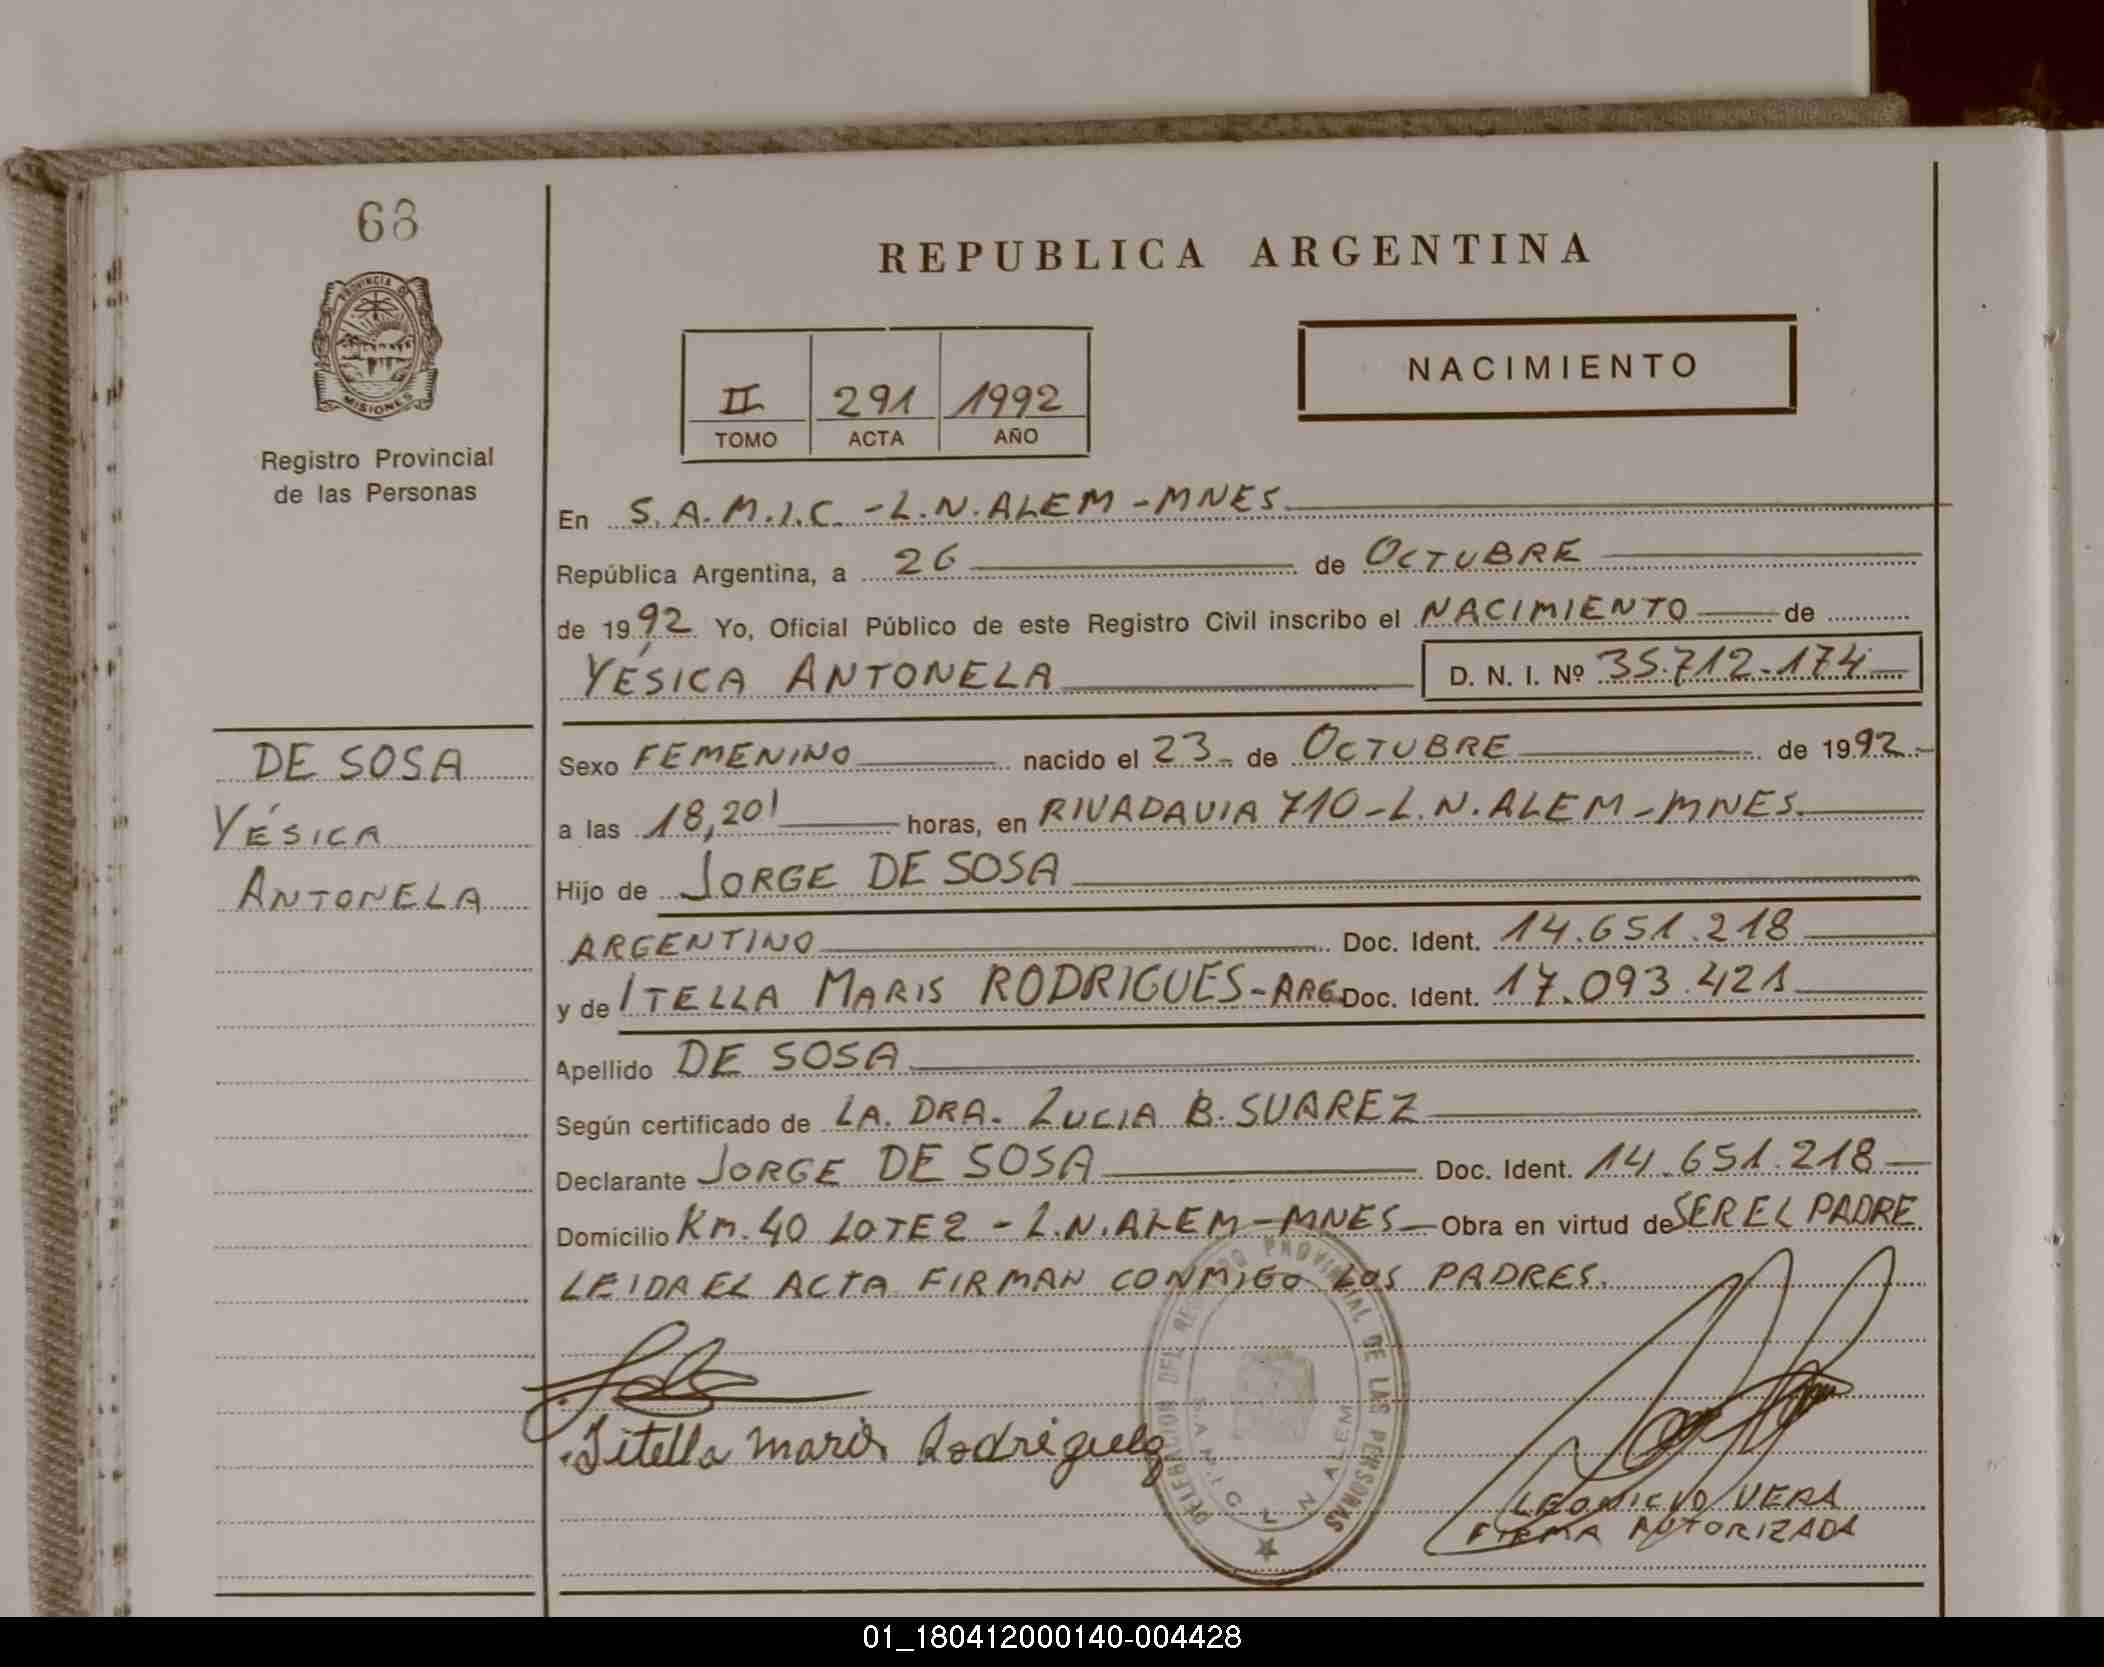 68
PROVINCIA DE
MISIONES
Registro Provincial
de las Personas
REPUBLICA ARGENTINA
II 291 1992
TOMO ACTA AÑO
NACIMIENTO
En S.A.M.I.C. - L.N. ALEM - MNES
República Argentina, a 26 de OCTUBRE
de 1992 Yo, Oficial Público de este Registro Civil inscribo el NACIMIENTO de
YÉSICA ANTONELA D. N. I. Nº 35.712.174
DE SOSA
YÉSICA
ANTONELA
Sexo FEMENINO nacido el 23 de OCTUBRE de 1992
a las 18,20' horas, en RIVADAVIA 710 - L.N. ALEM - MNES.
Hijo de JORGE DE SOSA
ARGENTINO Doc. Ident. 14.651.218
y de ITELLA MARIS RODRIGUES - ARG. Doc. Ident. 17.093.421
Apellido DE SOSA
Según certificado de LA. DRA. LUCIA B. SUAREZ
Declarante JORGE DE SOSA Doc. Ident. 14.651.218
Domicilio Km. 40 LOTE 2 - L.N. ALEM - MNES Obra en virtud de SER EL PADRE
LEIDA EL ACTA FIRMAN CONMIGO LOS PADRES.
Jitella maris Rodriguez
DELEGACION DEL REGISTRO PROVINCIAL DE LAS PERSONAS
S.A.M.I.C. L N ALEM
LEONICIO VERA
FIRMA AUTORIZADA
01_180412000140-004428